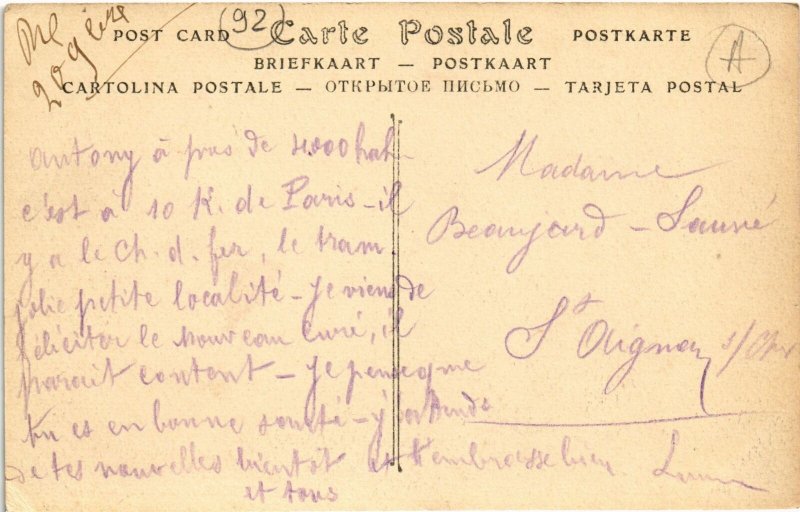 POST CARD
92
Carte Postale
POSTKARTE
A
BRIEFKAART — POSTKAART
CARTOLINA POSTALE — ОТКРЫТОЕ ПИСЬМО — TARJETA POSTAL
antony à près de 4000 hab-
c'est à 10 K. de Paris - il
y a le Ch. d. fer, le tram.
jolie petite localité - je viens de
féliciter le nouveau curé, il
parait content - je pense que
tu es en bonne santé - j'attends
de tes nouvelles bientôt et t'embrasse bien
et tous
Madame
Beaujard - Sauvé
St Aignan s/ Cher